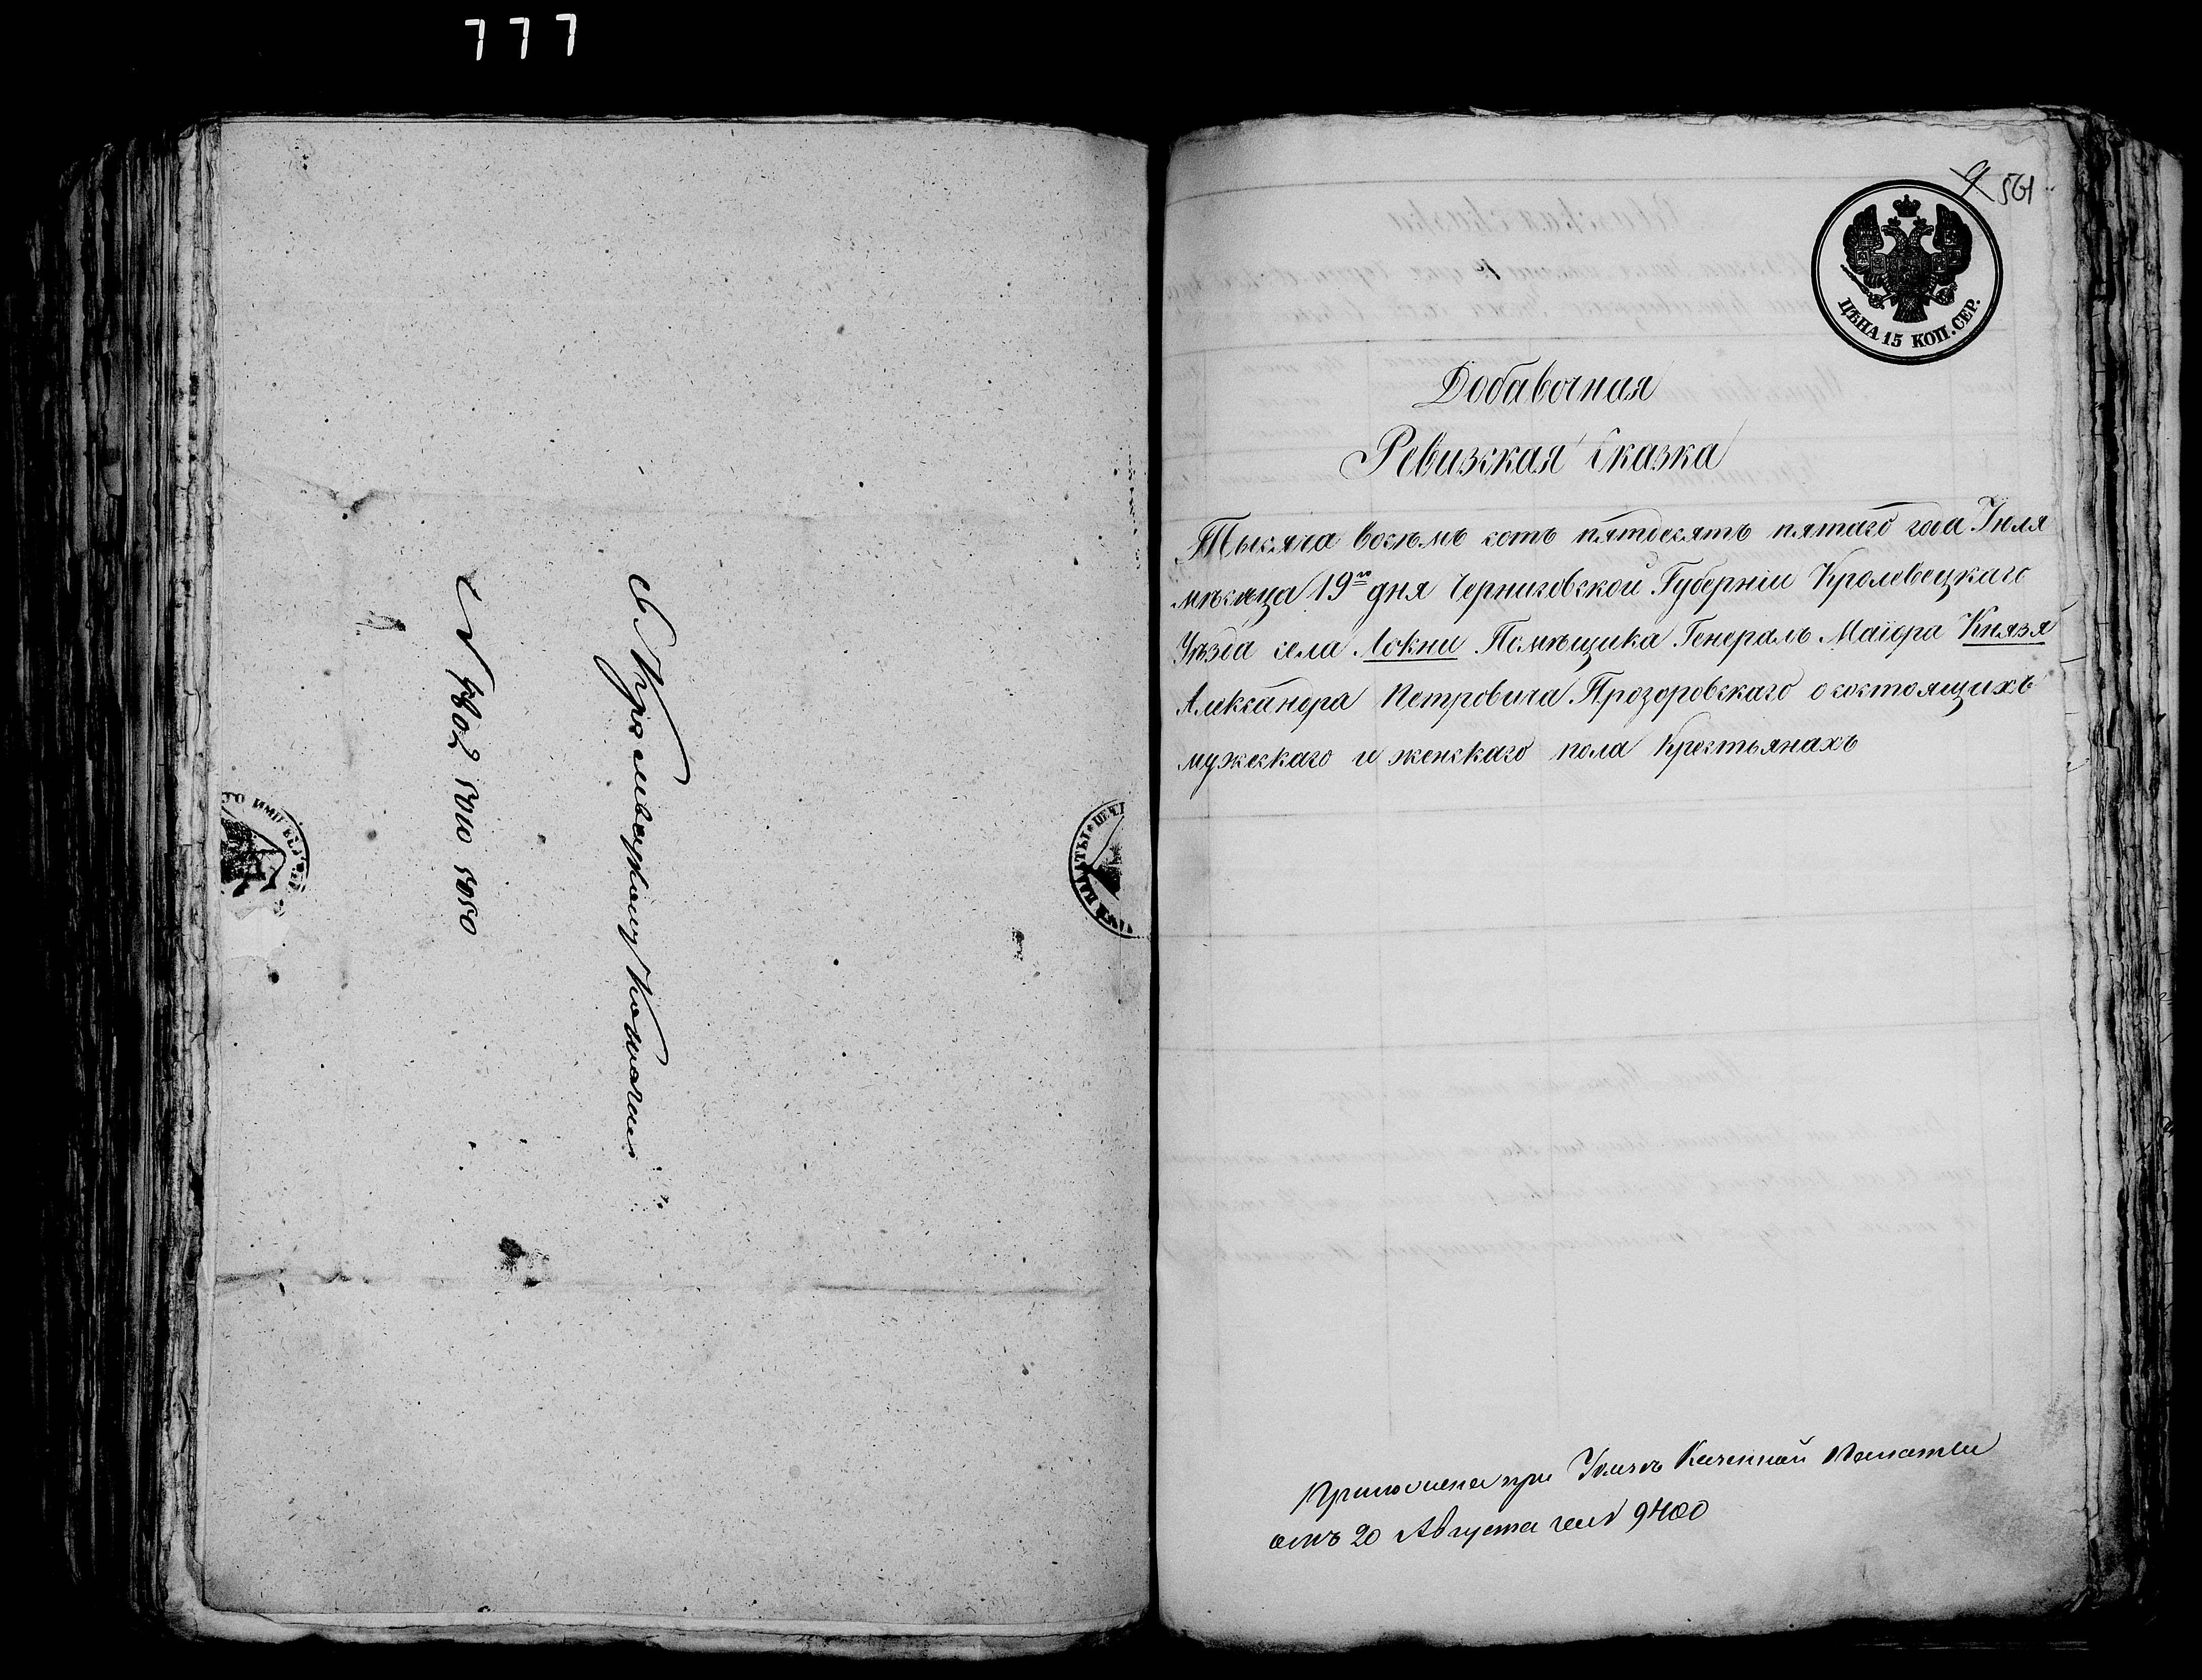 777
Кролевецкому Комитету
№ 4802 5010 5050
561
ЦѢНА 15 КОП. СЕР.
Добавочная
Ревизская Сказка
Тысяча восемь сотъ пятдесятъ пятаго года Іюля
мѣсяца 19го дня Черниговской Губерніи Кролевецкаго
Уѣзда села Локни Помѣщика Генералъ Маіора Князя
Александра Петровича Прозоровскаго о состоящихъ
мужескаго и женскаго пола Крестьянахъ
при Указѣ Казенной Палаты
отъ 20 Августа за № 9400